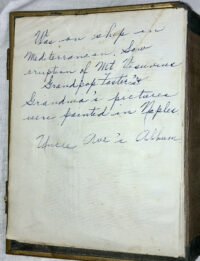 Was on ship in
Mediterranean. Saw
eruption of Mt Vesuvius
Grandpop Foster's
Grandma's pictures
were painted in Naples
Uncle Ave's Album